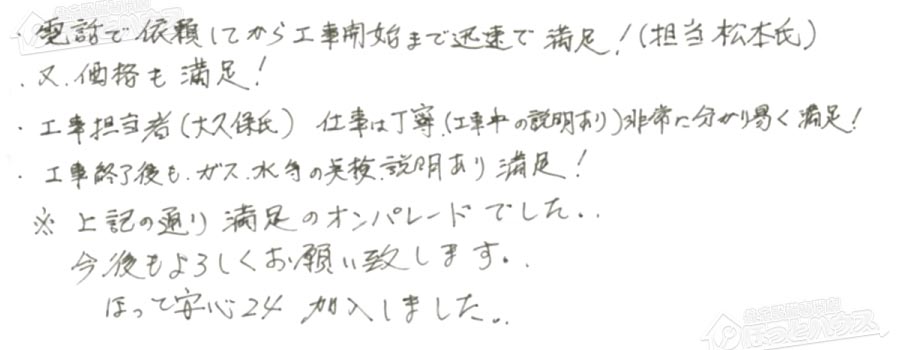 ・電話で依頼してから工事開始まで迅速で満足!(担当松本氏)
・又、価格も満足!
・工事担当者(大久保氏) 仕事は丁寧、(工事中の説明あり)非常に分かり易く満足!
・工事終了後も、ガス、水等の点検、説明あり満足!
※上記の通り満足のオンパレードでした。
今後もよろしくお願い致します。
ほっと安心24 加入しました。
ほっとハウス